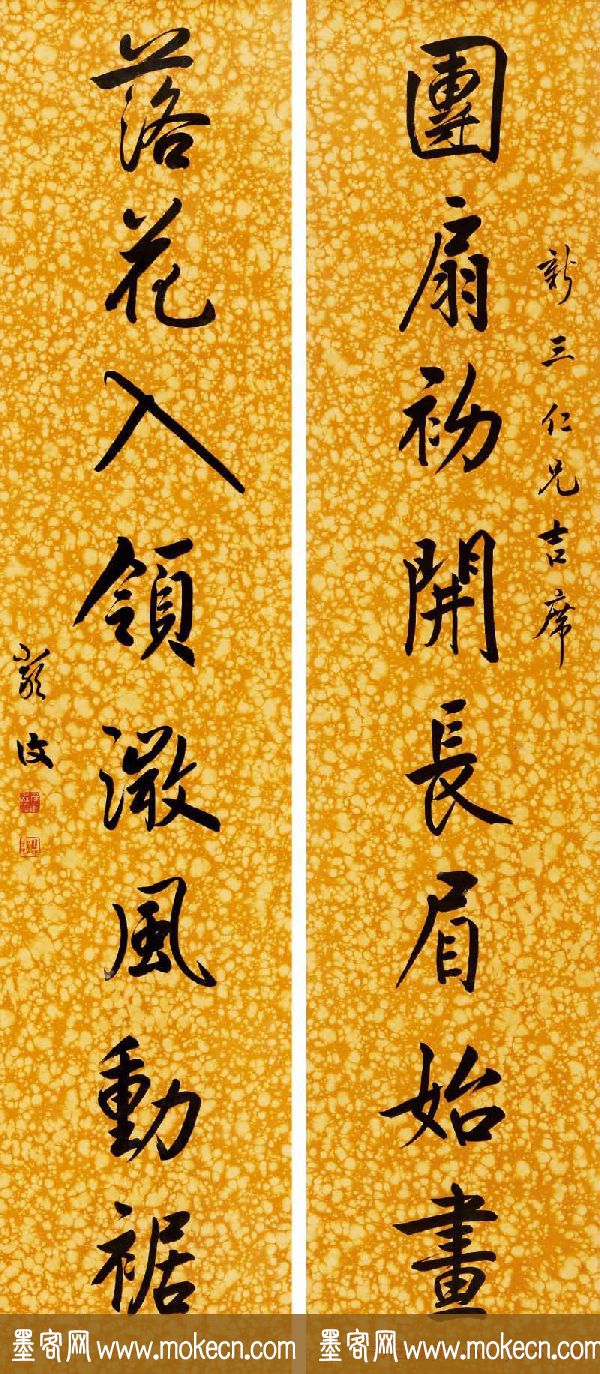 新三仁兄吉席
團扇初開長眉始畫
落花入領溦風動裾
墨客网 www.mokecn.com
墨客网 www.mokecn.com